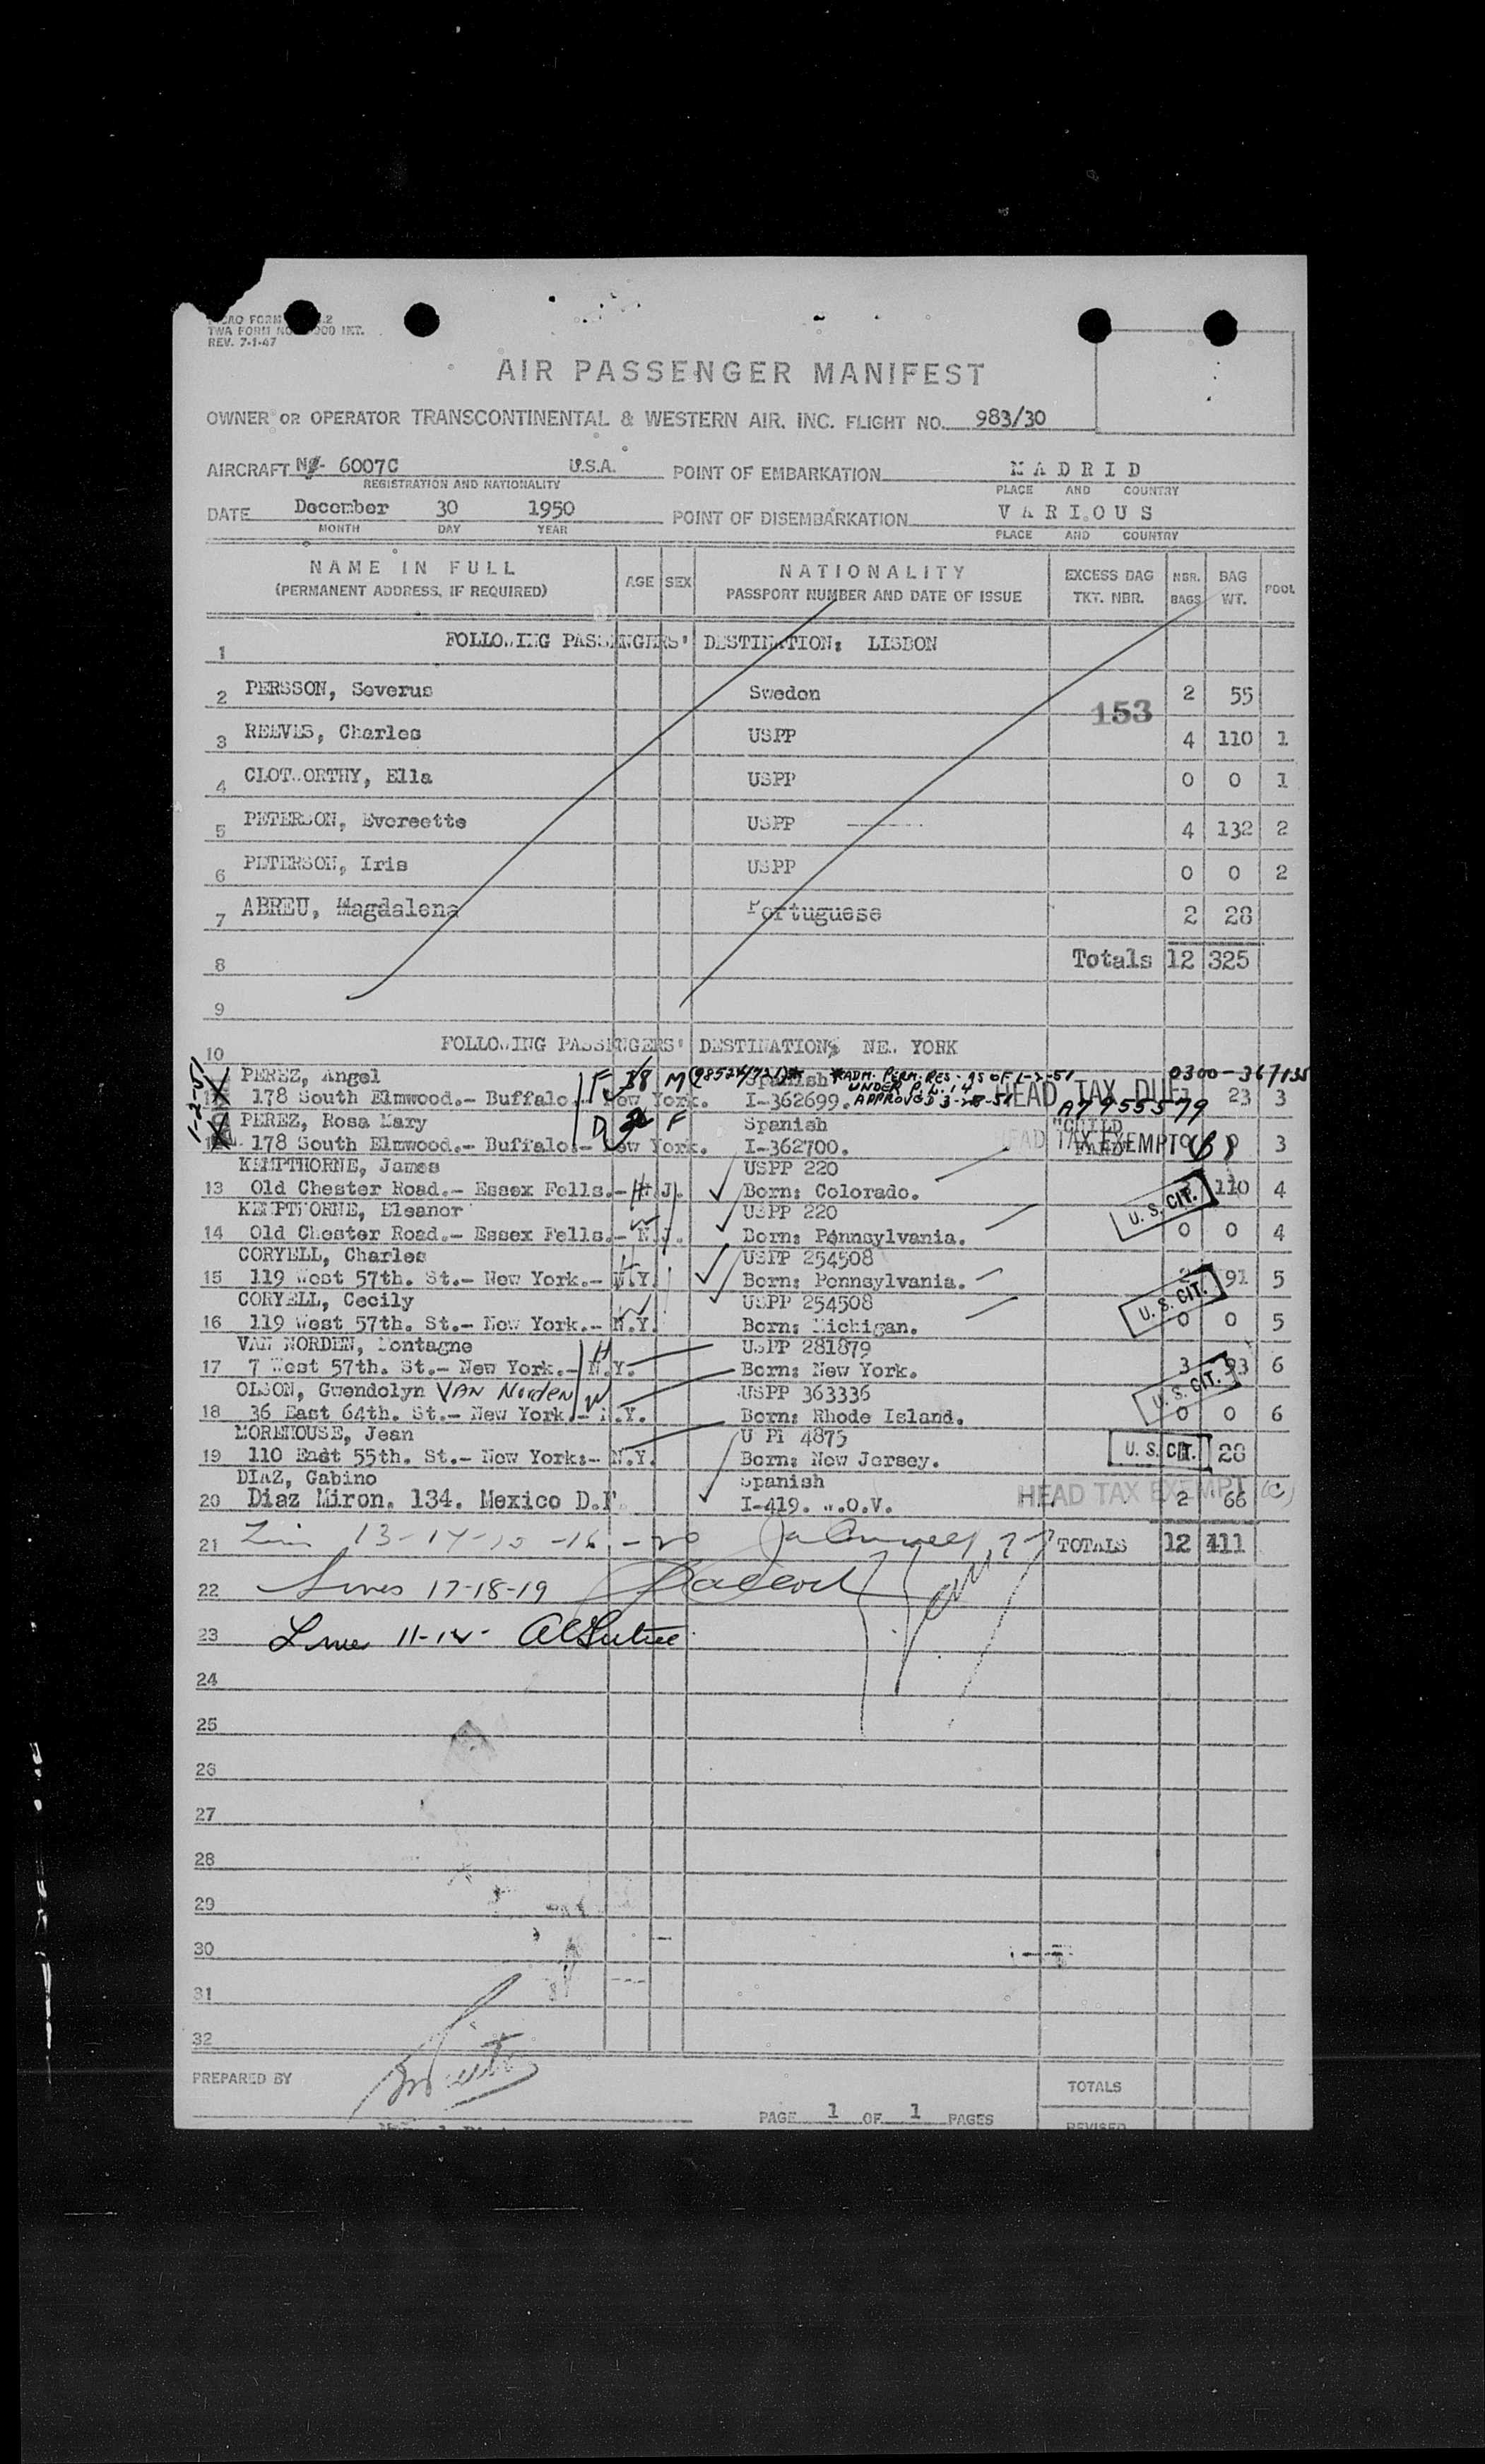 ICAO FORM
TWA FORM NO. INT.
REV. 7-1-47
AIR PASSENGER MANIFEST
OWNER OR OPERATOR TRANSCONTINENTAL & WESTERN AIR, INC. FLIGHT NO. 983/30
AIRCRAFT 6007C U.S.A. POINT OF EMBARKATION MADRID
REGISTRATION AND NATIONALITY PLACE AND COUNTRY
DATE December 30 1950 POINT OF DISEMBARKATION VARIOUS
MONTH DAY YEAR PLACE AND COUNTRY
NAME IN FULL AGE SEX NATIONALITY EXCESS BAG NBR. BAG POOL
(PERMANENT ADDRESS, IF REQUIRED) PASSPORT NUMBER AND DATE OF ISSUE TKT. NBR. BAGS WT.
1 FOLLOWING PASSENGERS' DESTINATION: LISBON
2 PERSSON, Severus Sweden 2 55
153
3 REEVES, Charles USPP 4 110 1
4 CLOTWORTHY, Ella USPP 0 0 1
5 PETERSON, Evereette USPP 4 132 2
6 PETERSON, Iris USPP 0 0 2
7 ABREU, Magdalena Portuguese 2 28
8 Totals 12 325
9
10 FOLLOWING PASSENGERS' DESTINATION: NEW YORK
1-2-51
PEREZ, Angel F M Spanish *ADM. PERM. RES. AS OF 1-2-51 0300-367135
UNDER P.L. 14
178 South Elmwood.- Buffalo.- New York. I-362699. APPROVED HEAD TAX DUE 23 3
A7955579
PEREZ, Rosa Mary D F Spanish "CHILD
178 South Elmwood.- Buffalo.- New York. I-362700. HEAD TAX EXEMPT 0 0 3
KEMPTHORNE, James USPP 220
13 Old Chester Road.- Essex Fells.- N.J. Born: Colorado. U. S. CIT. 110 4
KEMPTHORNE, Eleanor W USPP 220
14 Old Chester Road.- Essex Fells.- N.J. Born: Pennsylvania. 0 0 4
CORYELL, Charles H USPP 254508
15 119 West 57th. St.- New York.- N.Y. Born: Pennsylvania. U. S. CIT. 91 5
CORYELL, Cecily W USPP 254508
16 119 West 57th. St.- New York.- N.Y. Born: Michigan. 0 0 5
VAN NORDEN, Montagne H USPP 281879
17 7 West 57th. St.- New York.- N.Y. Born: New York. 3 93 6
U. S. CIT.
OLSON, Gwendolyn VAN Norden W USPP 363336
18 36 East 64th. St.- New York.- N.Y. Born: Rhode Island. 0 0 6
MOREHOUSE, Jean 4875
19 110 East 55th. St.- New York:- N.Y. Born: New Jersey. U. S. CIT. 28
DIAZ, Gabino Spanish
20 Diaz Miron. 134. Mexico D.F. I-419. HEAD TAX EXEMPT (C) 2 66
21 TOTALS 12 411
22 Lines 17-18-19
23 Lines
24
25
26
27
28
29
30
31
32
PREPARED BY TOTALS
PAGE 1 OF 1 PAGES
REVISED